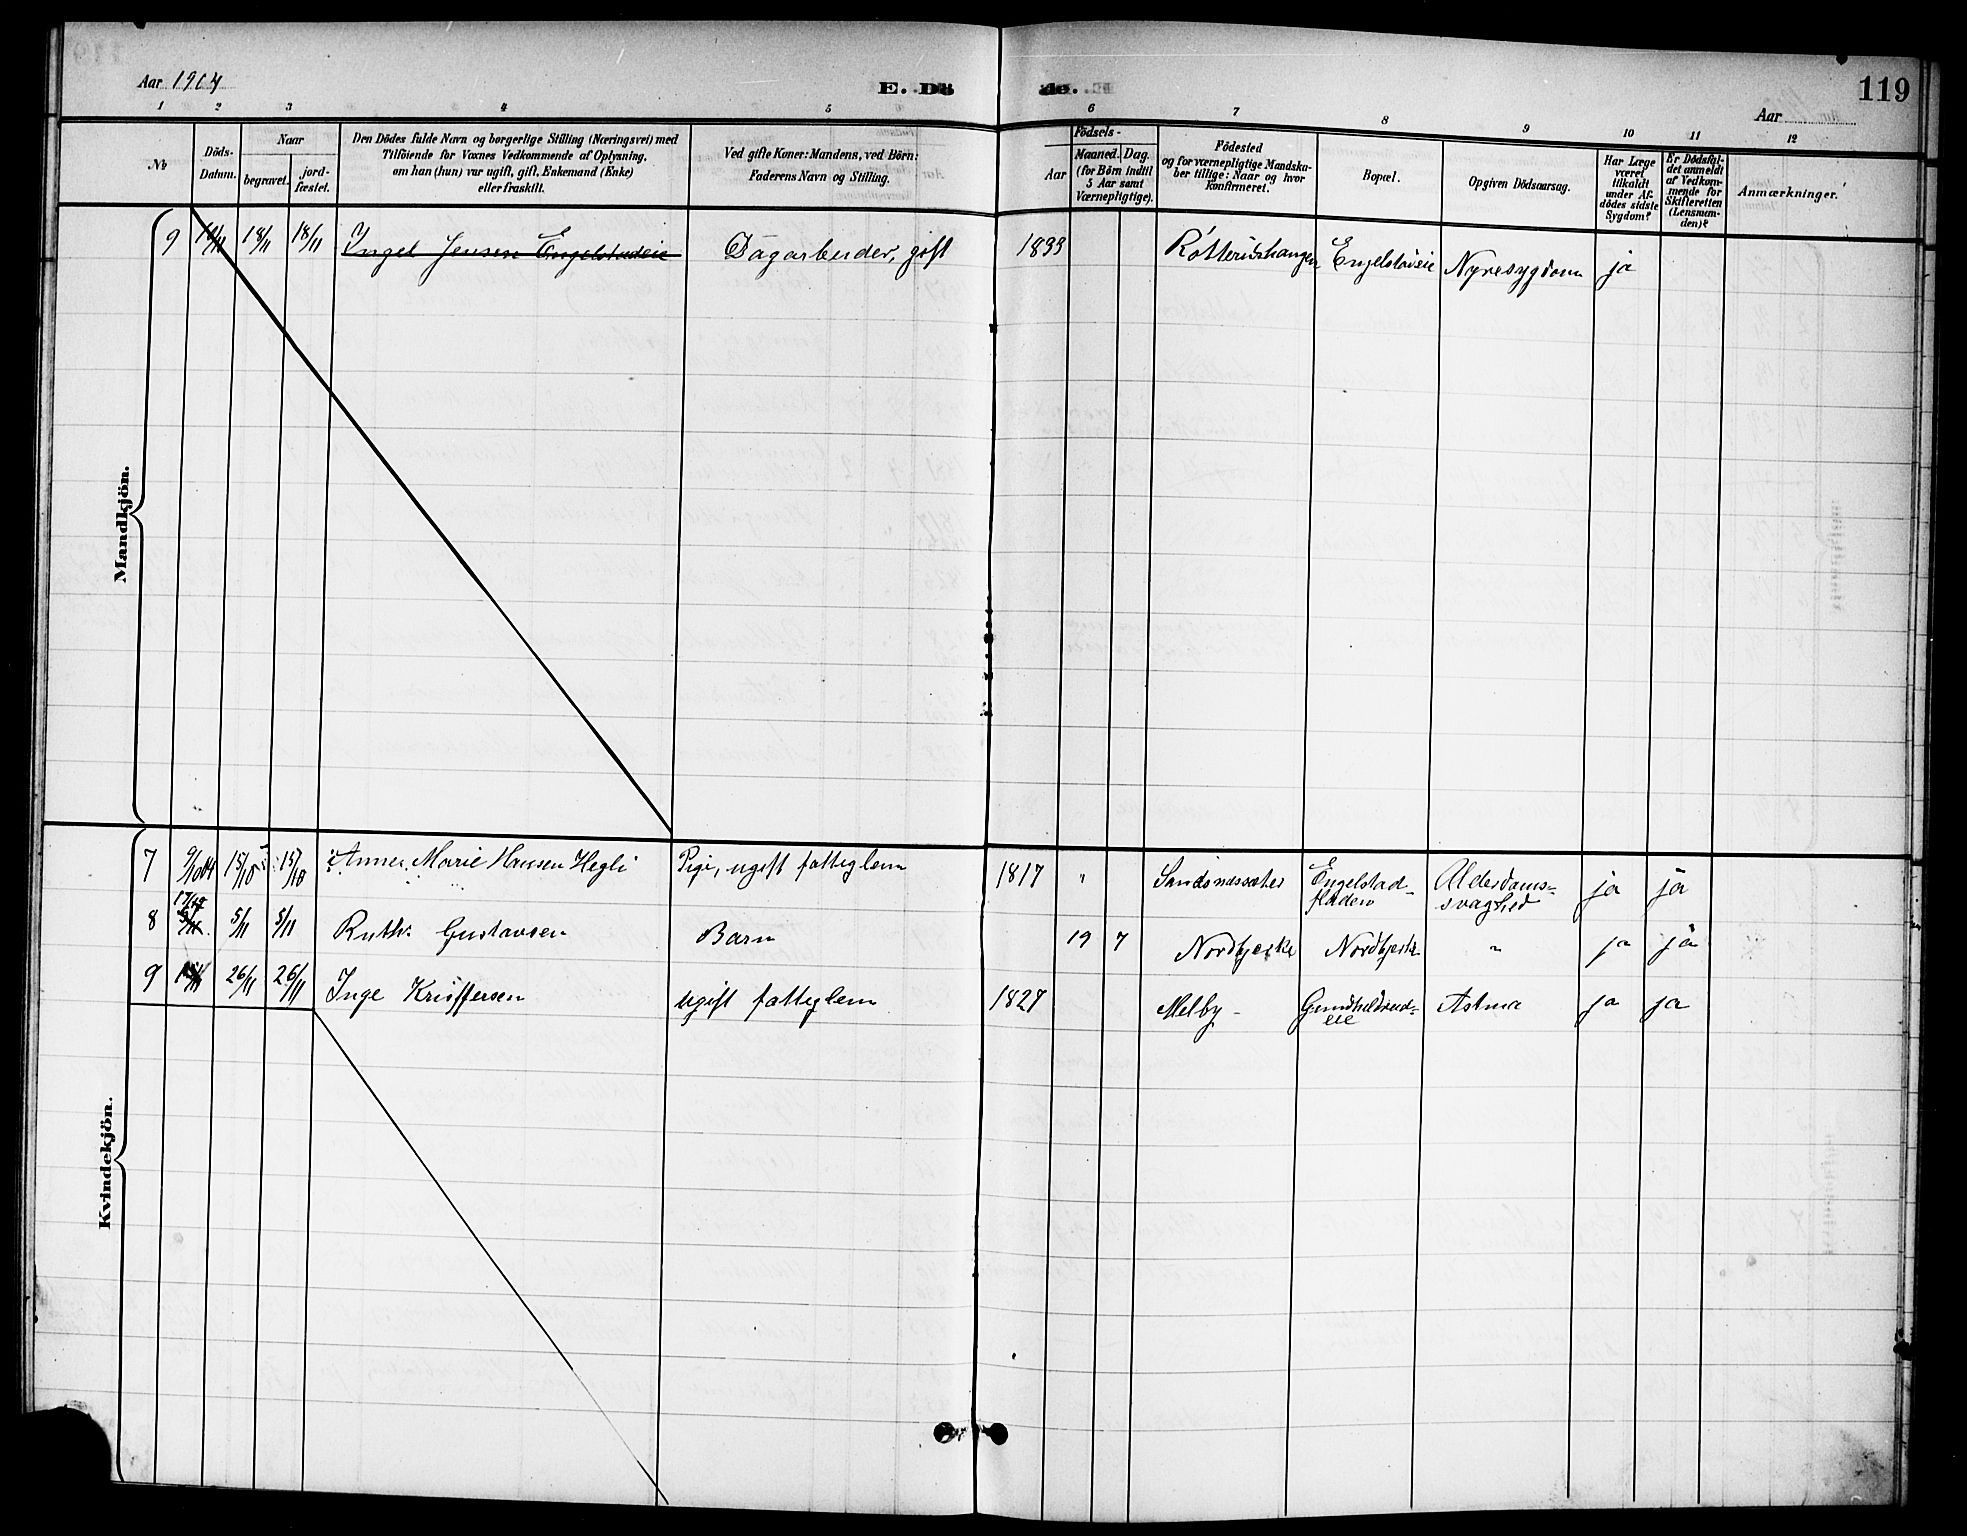 Aar 1904
E. Dö de.
119
Aar
1 2 3 4 5 6 7 8 9 10 11 12
No
Döds-
Datum.
Naar
begravet.
jord-
fæstet.
Den Dödes fulde Navn og borgerlige Stilling (Næringsvei) med
Tilföiende for Voxnes Vedkommende af Oplysning,
om han (hun) var ugift, gift, Enkemand (Enke)
eller fraskilt.
Ved gifte Koner: Mandens, ved Börn:
Faderens Navn og Stilling.
Födsels-
Aar
Maaned. Dag.
(for Börn indtil
5 Aar samt
Værnepligtige).
Födested
og for værnepligtige Mandska-
ber tillige: Naar og hvor
konfirmeret.
Bopæl.
Opgiven Dödsaarsag.
Har Læge
været
tilkaldt
under Af-
dödes sidste
Sygdom?
Er Dödsfal-
det anmeldt
af Vedkom-
mende for
Skifteretten
(Lensman-
den)?
Anmærkninger.
Mandkjön.
9 18/11 18/11 Ingel Jensen Engelstadeie Dagarbeider, gift 1833 Engelstadeie Nyresygdom ja
Kvindekjön.
7 9/10 04 15/10 15/10 Anne Marie Hansen Hegli Pige, ugift fatteglem 1817 " Sandsnessæter Engelstad- Alderdoms- ja ja
fladen svaghed
8 5/11 5/11 Ruth Gustavsen Barn 19 7 Nordbjerke Nordbjerke " ja ja
9 26/11 26/11 Inge Kristfersen ugift fatteglem 1827 Melby - Gundhildrud- Astma ja ja
eie